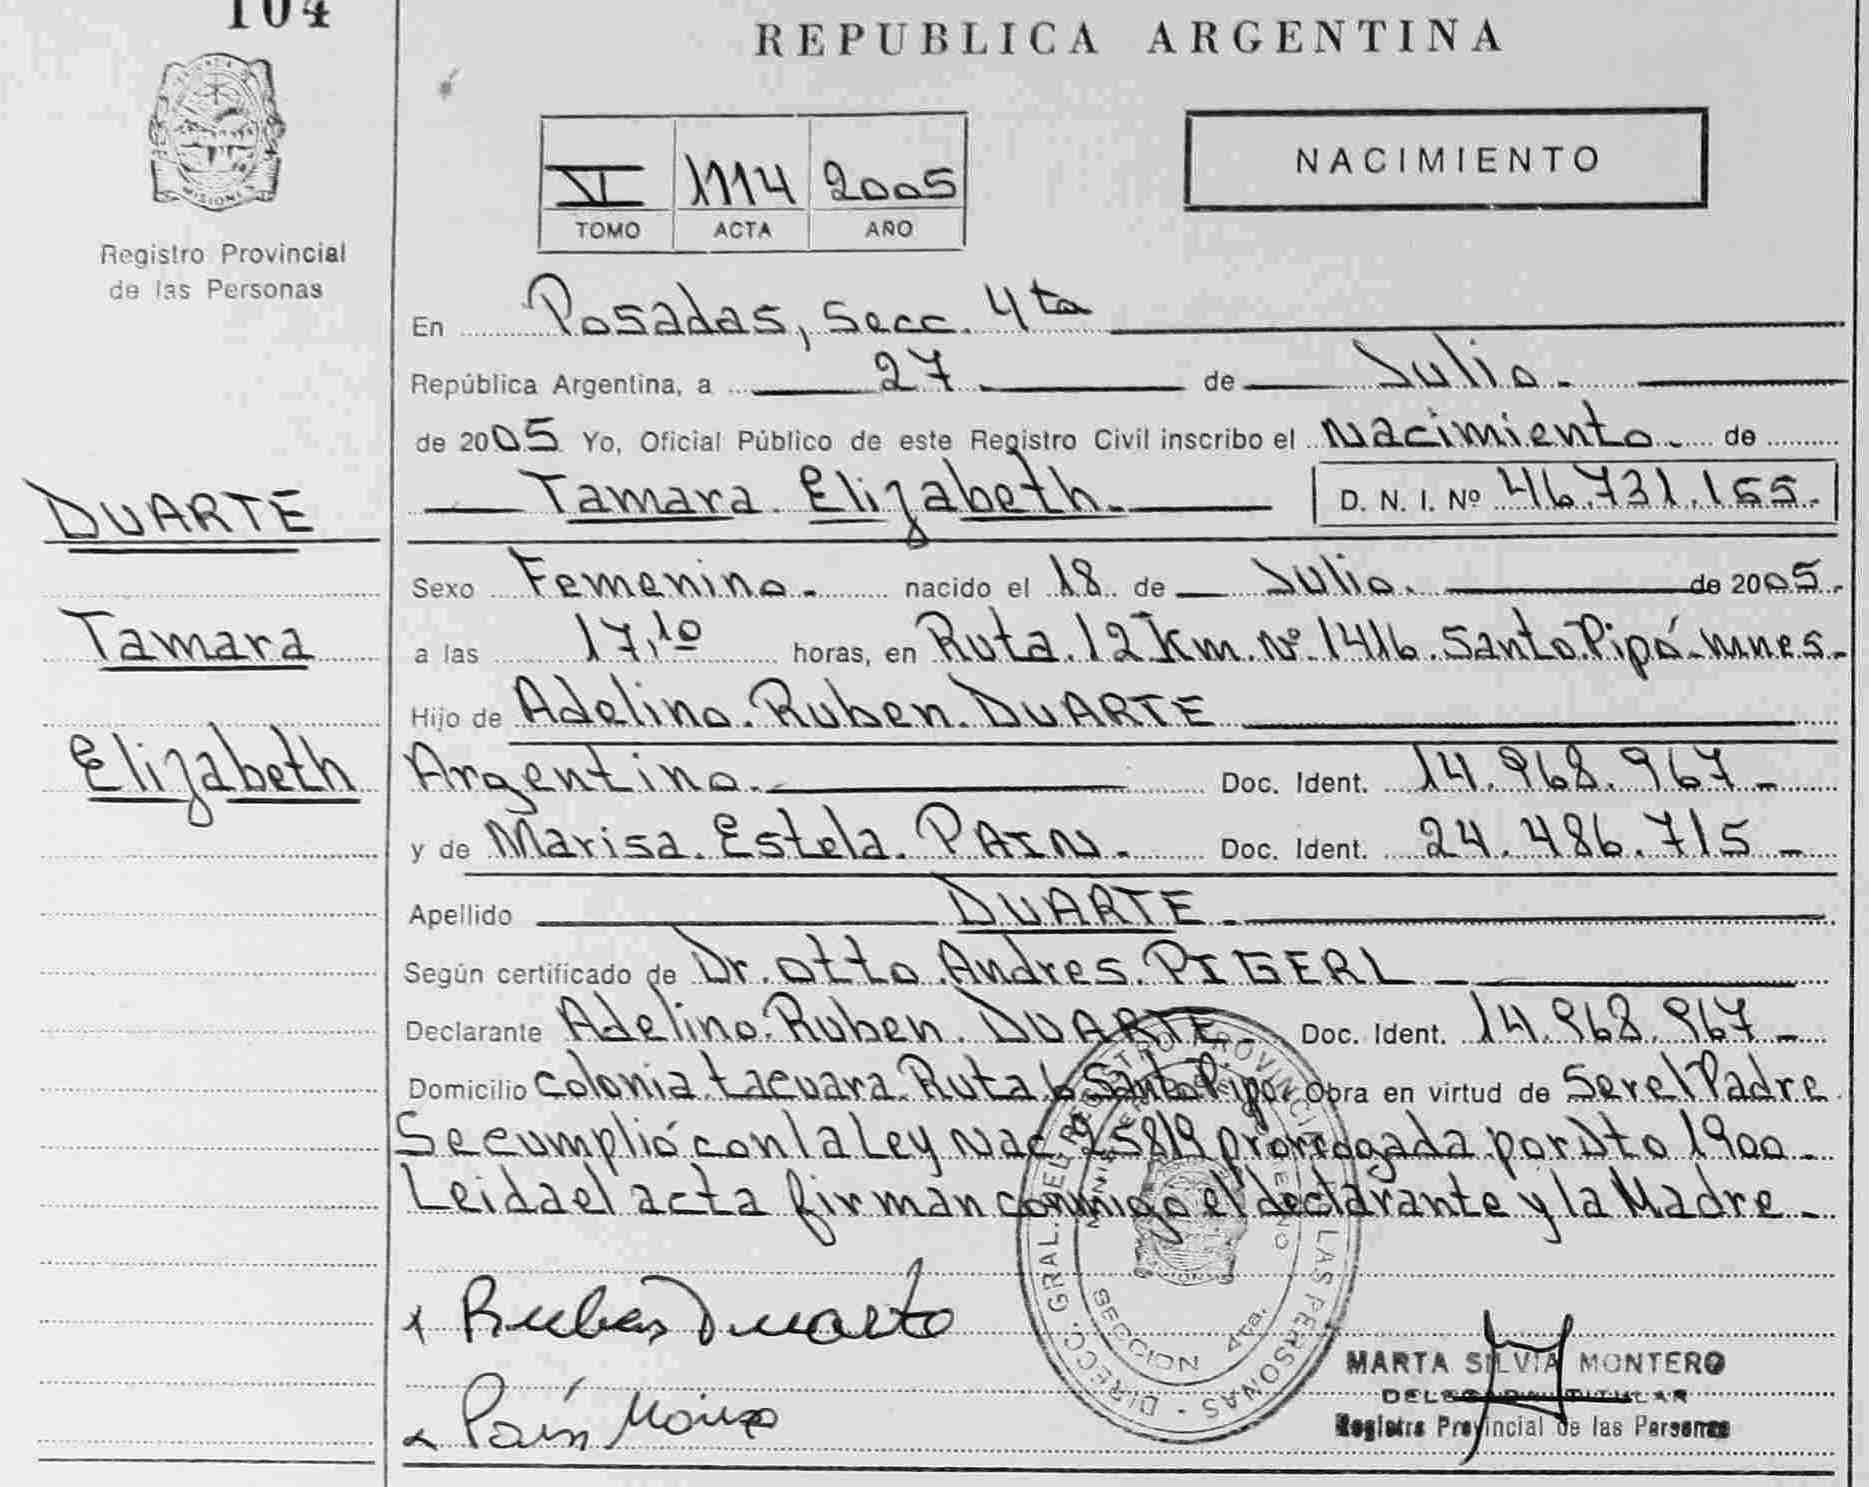 104
REPUBLICA ARGENTINA
MISIONES
Registro Provincial
de las Personas
VI 1114 2005
TOMO ACTA AÑO
NACIMIENTO
En Posadas, Secc. 4ta
República Argentina, a 27 de Julio
de 2005 Yo, Oficial Público de este Registro Civil inscribo el Nacimiento de
Tamara Elizabeth D. N. I. Nº 46.731.155
DUARTE
Tamara
Elizabeth
Sexo Femenino nacido el 18 de Julio de 2005
a las 17,10 horas, en Ruta 12 Km. Nº 1416. Santo Pipó-Mnes.
Hijo de Adelino Ruben DUARTE
Argentino Doc. Ident. 14.968.967
y de Marisa Estela PAIN Doc. Ident. 24.486.715
Apellido DUARTE
Según certificado de Dr. Otto Andres PIGERL
Declarante Adelino Ruben DUARTE Doc. Ident. 14.968.967
Domicilio Colonia tacuara Ruta 6 Santo Pipo Obra en virtud de Ser el Padre
Se cumplió con la Ley Nac. 25819 prorrogada por Dto 1900
Leida el acta firman conmigo el declarante y la Madre
Ruben Duarte
Pain
DIRECC. GRAL. DEL REGISTRO PROVINCIAL DE LAS PERSONAS
SECCION 4ta.
MARTA SILVIA MONTERO
DELEGADA TITULAR
Registro Provincial de las Personas